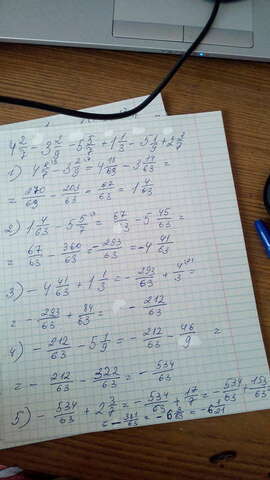 4 2/7 - 3 2/9 - 5 5/7 + 1 1/3 - 5 1/9 + 2 3/7
1) 4 2/7 - 3 2/9 = 4 18/63 - 3 14/63 =
= 270/63 - 203/63 = 67/63 = 1 4/63
2) 1 4/63 - 5 5/7 = 67/63 - 5 45/63 =
= 67/63 - 360/63 = - 293/63 = -4 41/63
3) - 4 41/63 + 1 1/3 = - 293/63 + 4/3 =
= - 293/63 + 84/63 = - 212/63
4) - 212/63 - 5 1/9 = - 212/63 - 46/9 =
= - 212/63 - 322/63 = - 534/63
5) - 534/63 + 2 3/7 = - 534/63 + 17/7 = - 534/63 + 153/63
= - 381/63 = - 6 3/63 = - 6 1/21